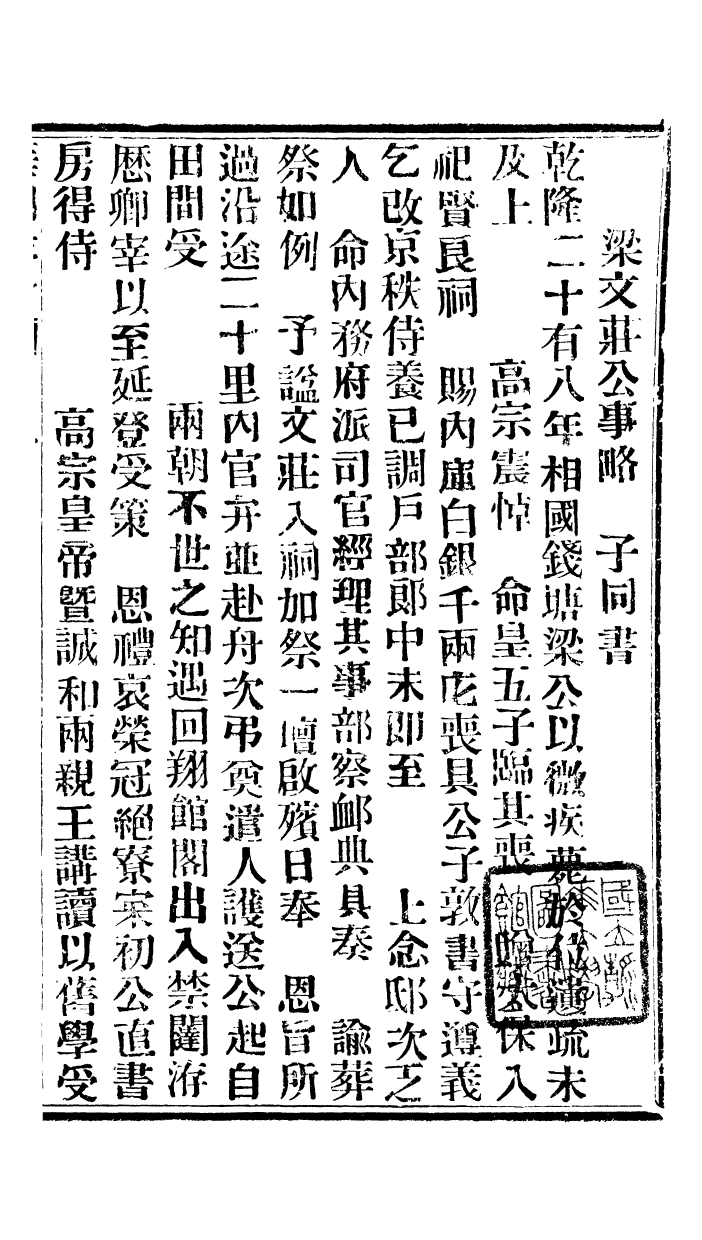 梁文莊公事略　子同書
乾隆二十有八年相國錢塘梁公以微疾薨於位遺疏未
及上　高宗震悼　命皇五子臨其喪　贈太保入
祀賢良祠　賜內庫白銀千兩庀喪具公子敦書守遵義
乞改京秩侍養已調戶部郞中未即至　上念邸次乏
人　命內務府派司官經理其事部察卹典具奏　諭葬
祭如例　予諡文莊入祠加祭一壇啟殯日奉　恩旨所
過沿途二十里內官弁並赴舟次弔奠遣人護送公起自
田間受　兩朝不世之知遇回翔館閣出入禁闥洊
歷卿宰以至延登受策　恩禮哀榮冠絕寮寀初公直書
房得侍　高宗皇帝暨諴和兩親王講讀以舊學受
國立
圖書
館藏